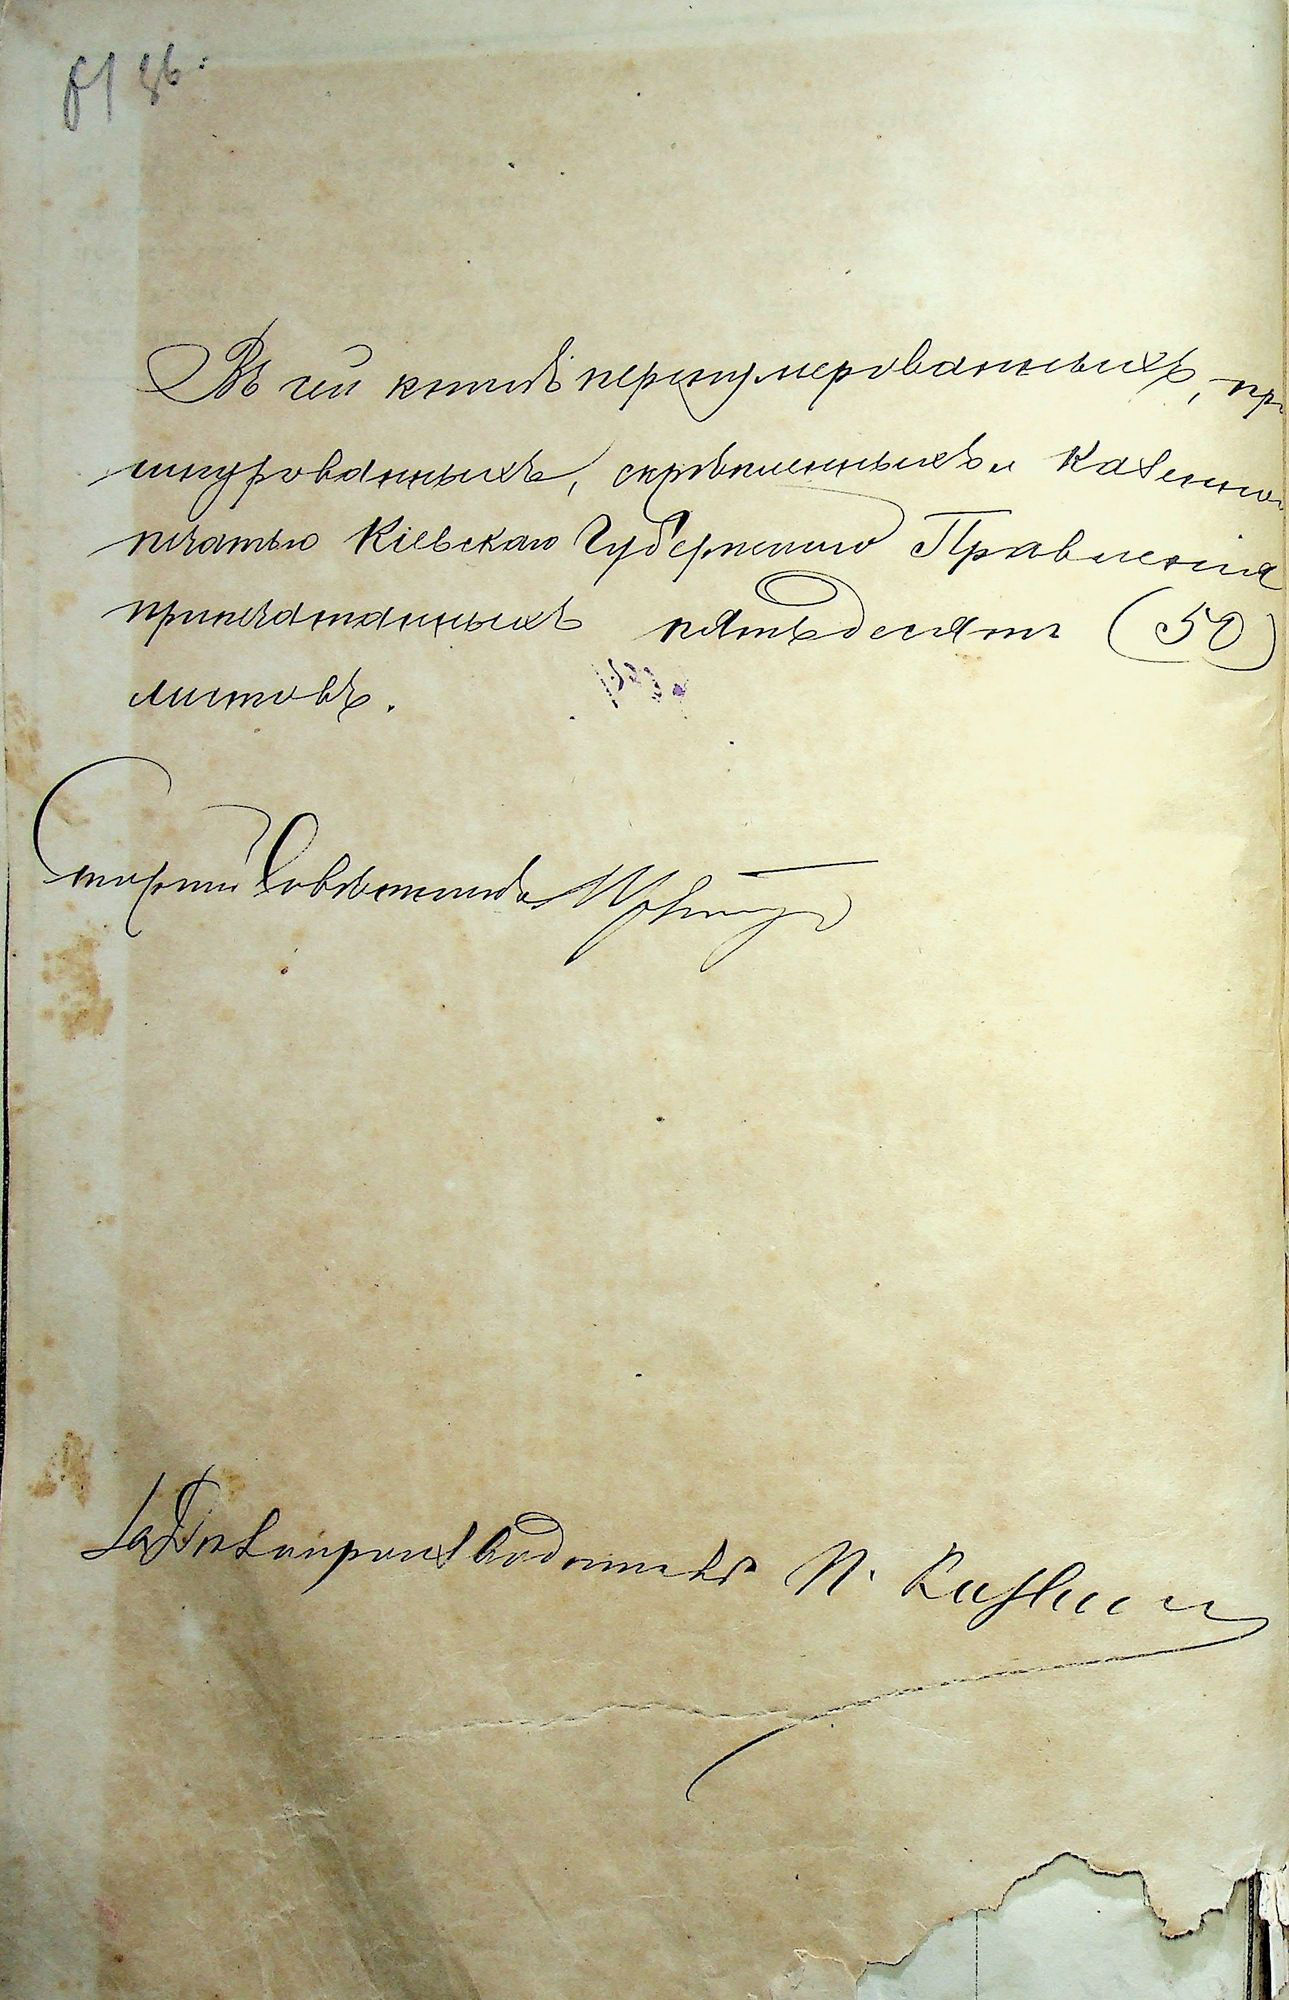 Въ сей книгѣ перенумерованныхъ, пр
шнурованныхъ, скрѣпленныхъ и казенно
печатью Кіевскаго Губернскаго Правленія
припечатанныхъ пятьдесятъ (50)
листовъ.
Старшій Совѣтникъ
За Дѣлопроизводителя П.